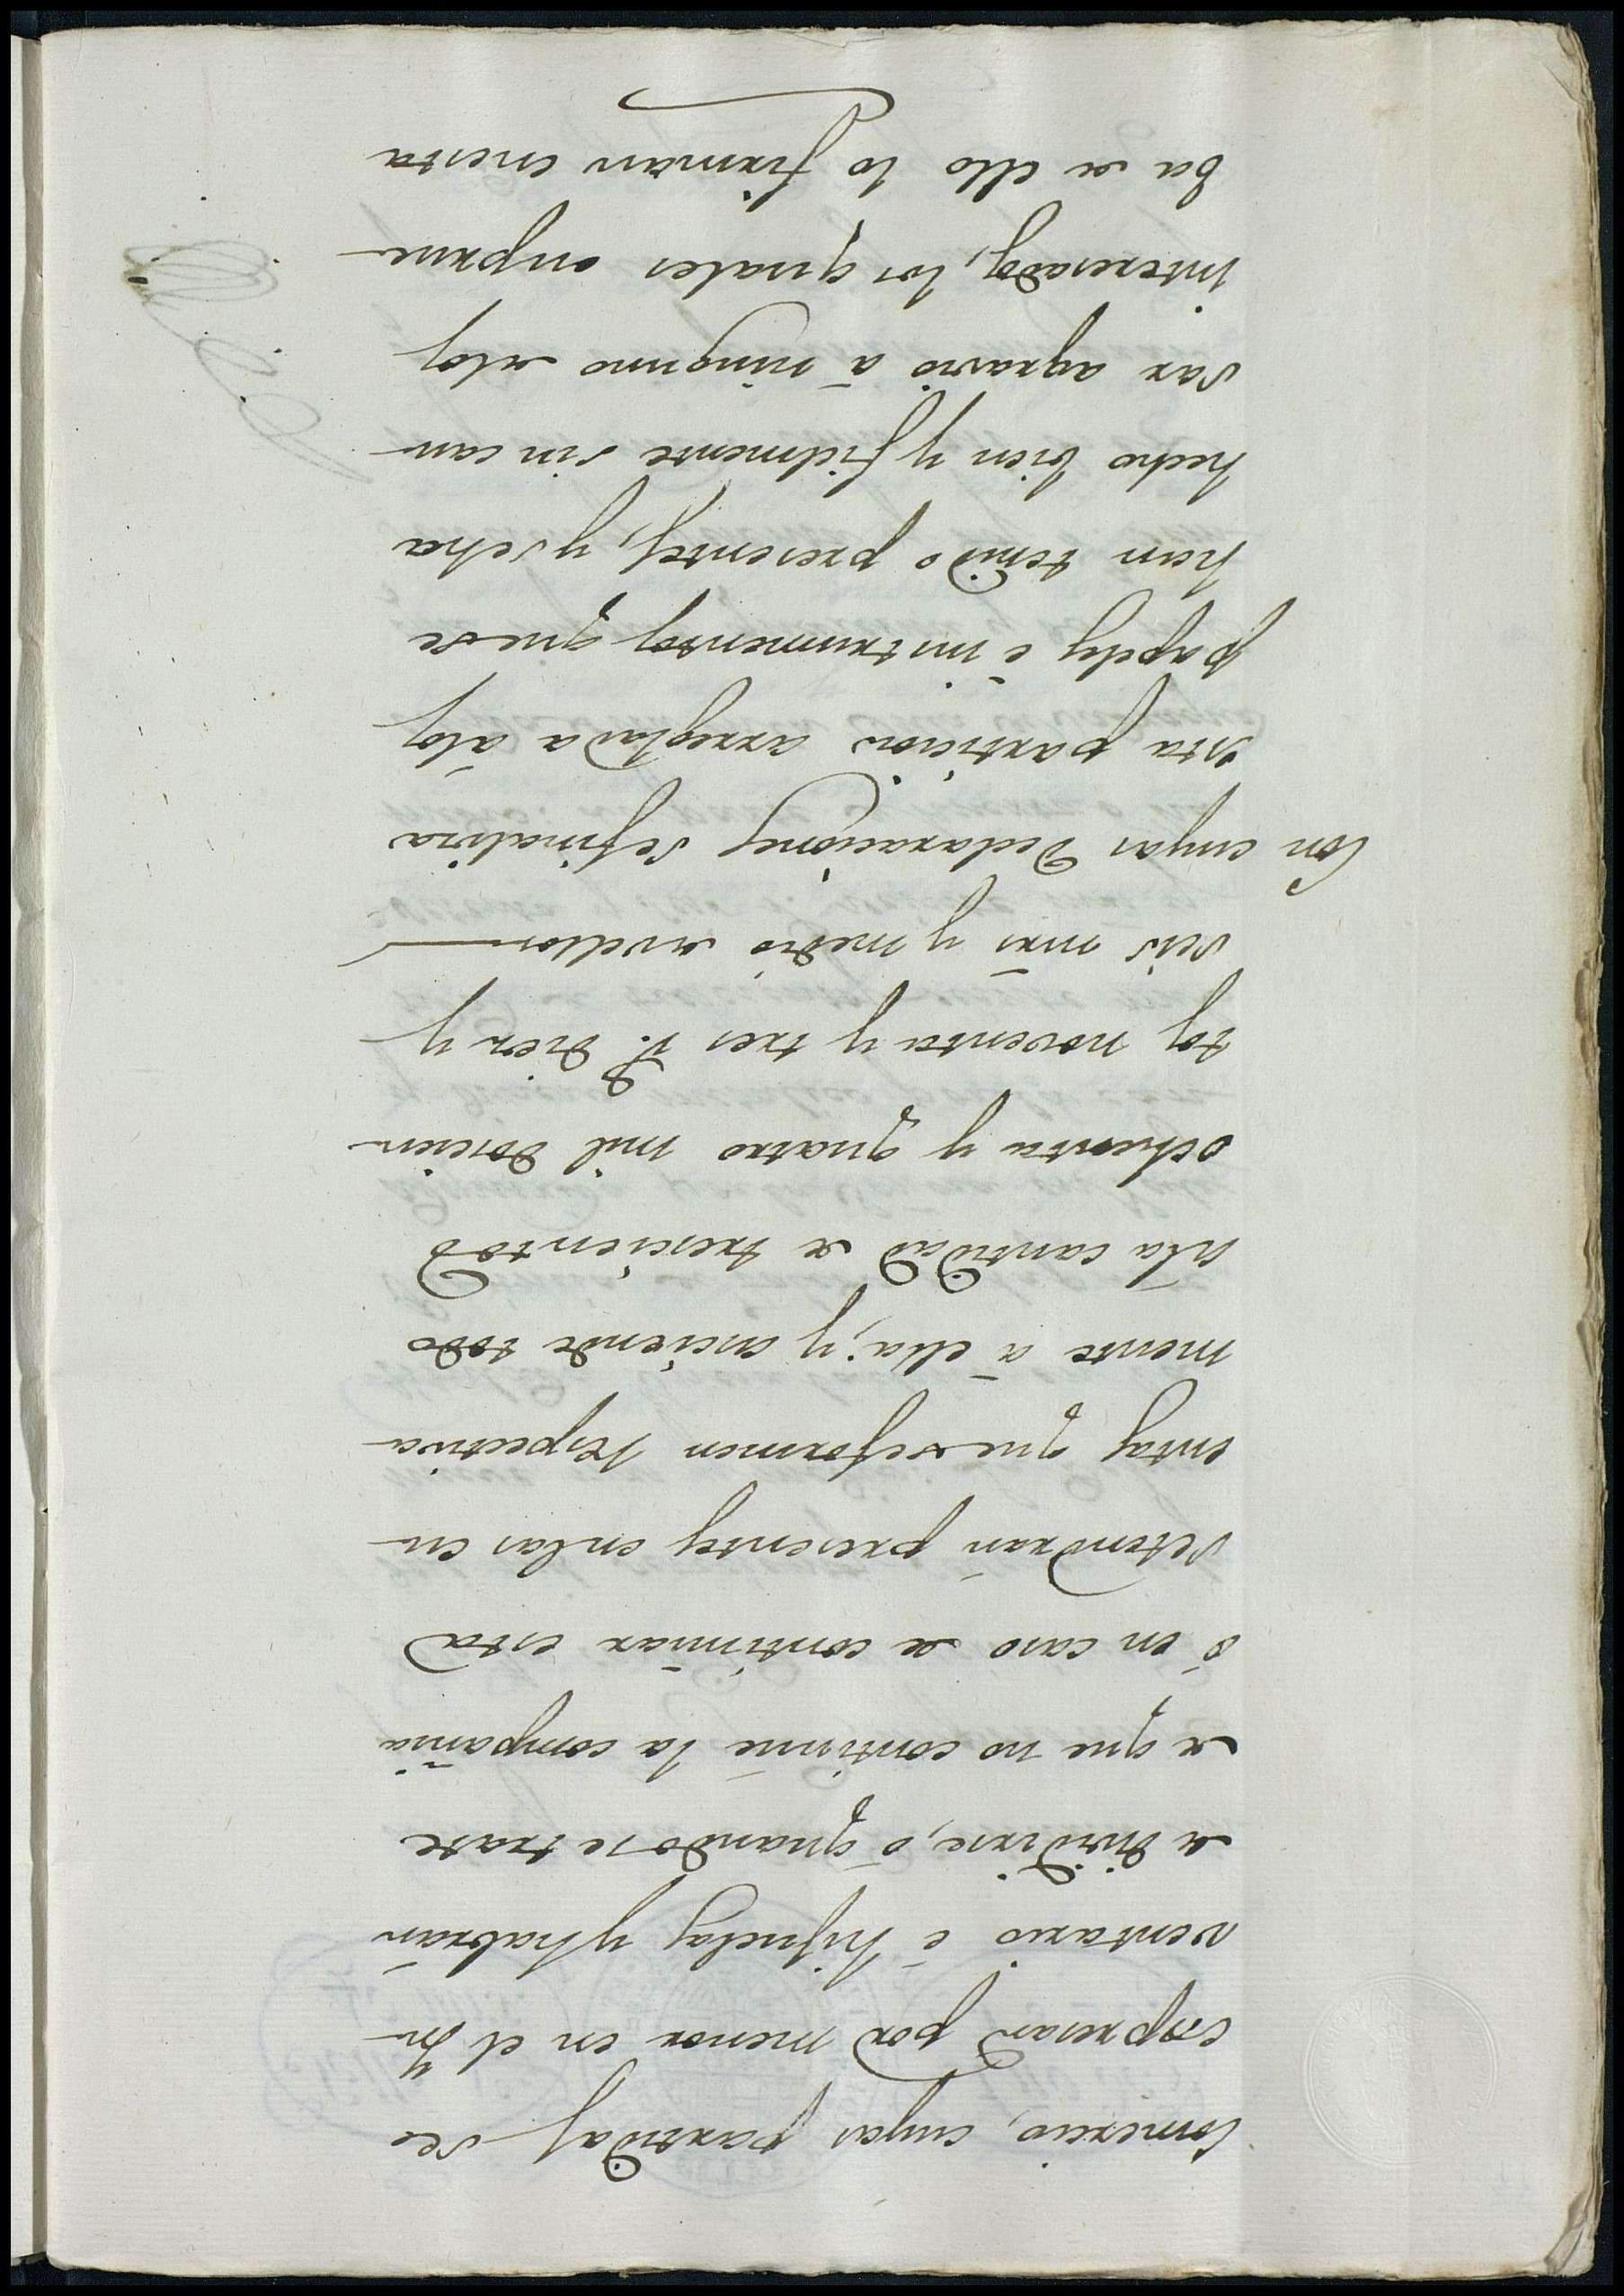 Comercio, cuyas partidas se
expresan por menor en el In-
ventario é hijuelas y habran
de dividirse, ó quando se trate
de que no continúe la compañia
ó en caso de continuar esta
se tendran presentes en las cu-
entas que se formen respectiva-
mente á ella; y asciende todo
á la cantidad de trescientos
ochenta y quatro mil doscien-
tos noventa y tres rs. diez y
seis mrs y medio de vellon
Con cuyas Declaraciones se finaliza
esta particion arreglada á los
papeles é instrumentos que se
han tenido presentes, y se ha
hecho bien y fielmente sin cau-
sar agravio á ninguno de los
interesados, los quales en prue-
ba de ello lo firman en esta